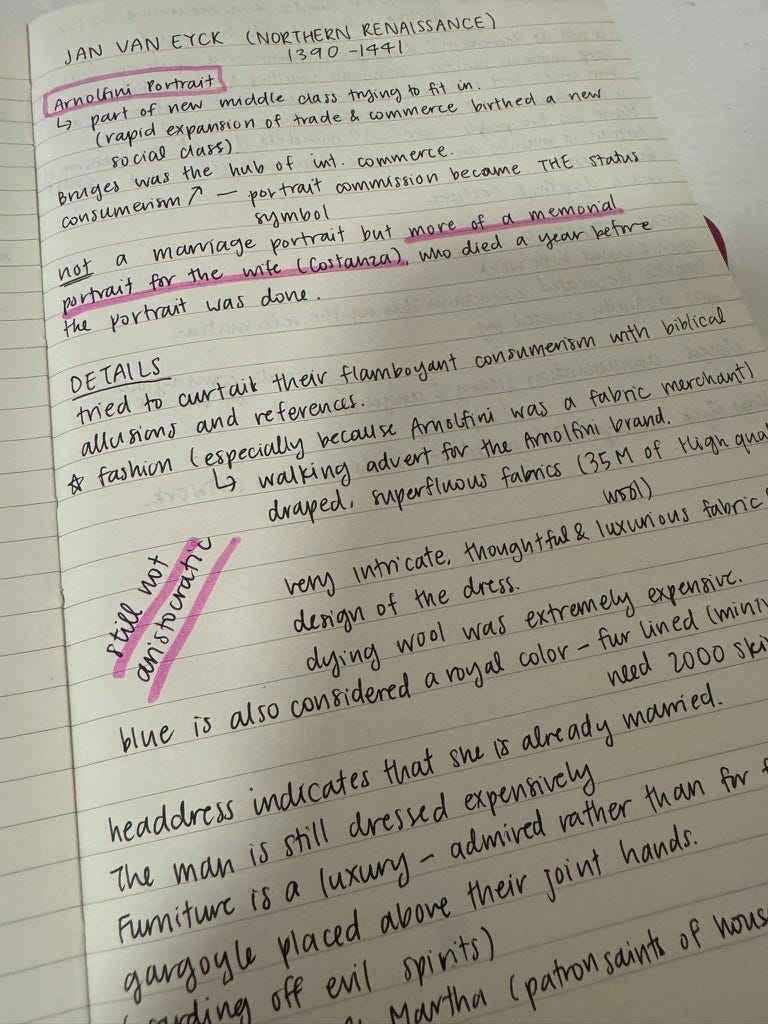 JAN VAN EYCK (NORTHERN RENAISSANCE)
1390 - 1441
Arnolfini Portrait
↳ part of new middle class trying to fit in.
(rapid expansion of trade & commerce birthed a new
social class)
Bruges was the hub of int. commerce.
consumerism ↗ — portrait commission became THE status
symbol
not a marriage portrait but more of a memorial
portrait for the wife (Costanza), who died a year before
the portrait was done.
DETAILS
tried to curtail their flamboyant consumerism with biblical
allusions and references.
☆ fashion (especially because Arnolfini was a fabric merchant)
↳ walking advert for the Arnolfini brand.
draped, superfluous fabrics (35M of High qua
wool)
still not
aristocratic
very intricate, thoughtful & luxurious fabric
design of the dress.
dying wool was extremely expensive.
blue is also considered a royal color - fur lined (mini
need 2000 ski
headdress indicates that she is already married.
The man is still dressed expensively
Furniture is a luxury - admired rather than for
gargoyle placed above their joint hands.
off evil spirits)
Martha (patron saints of hous